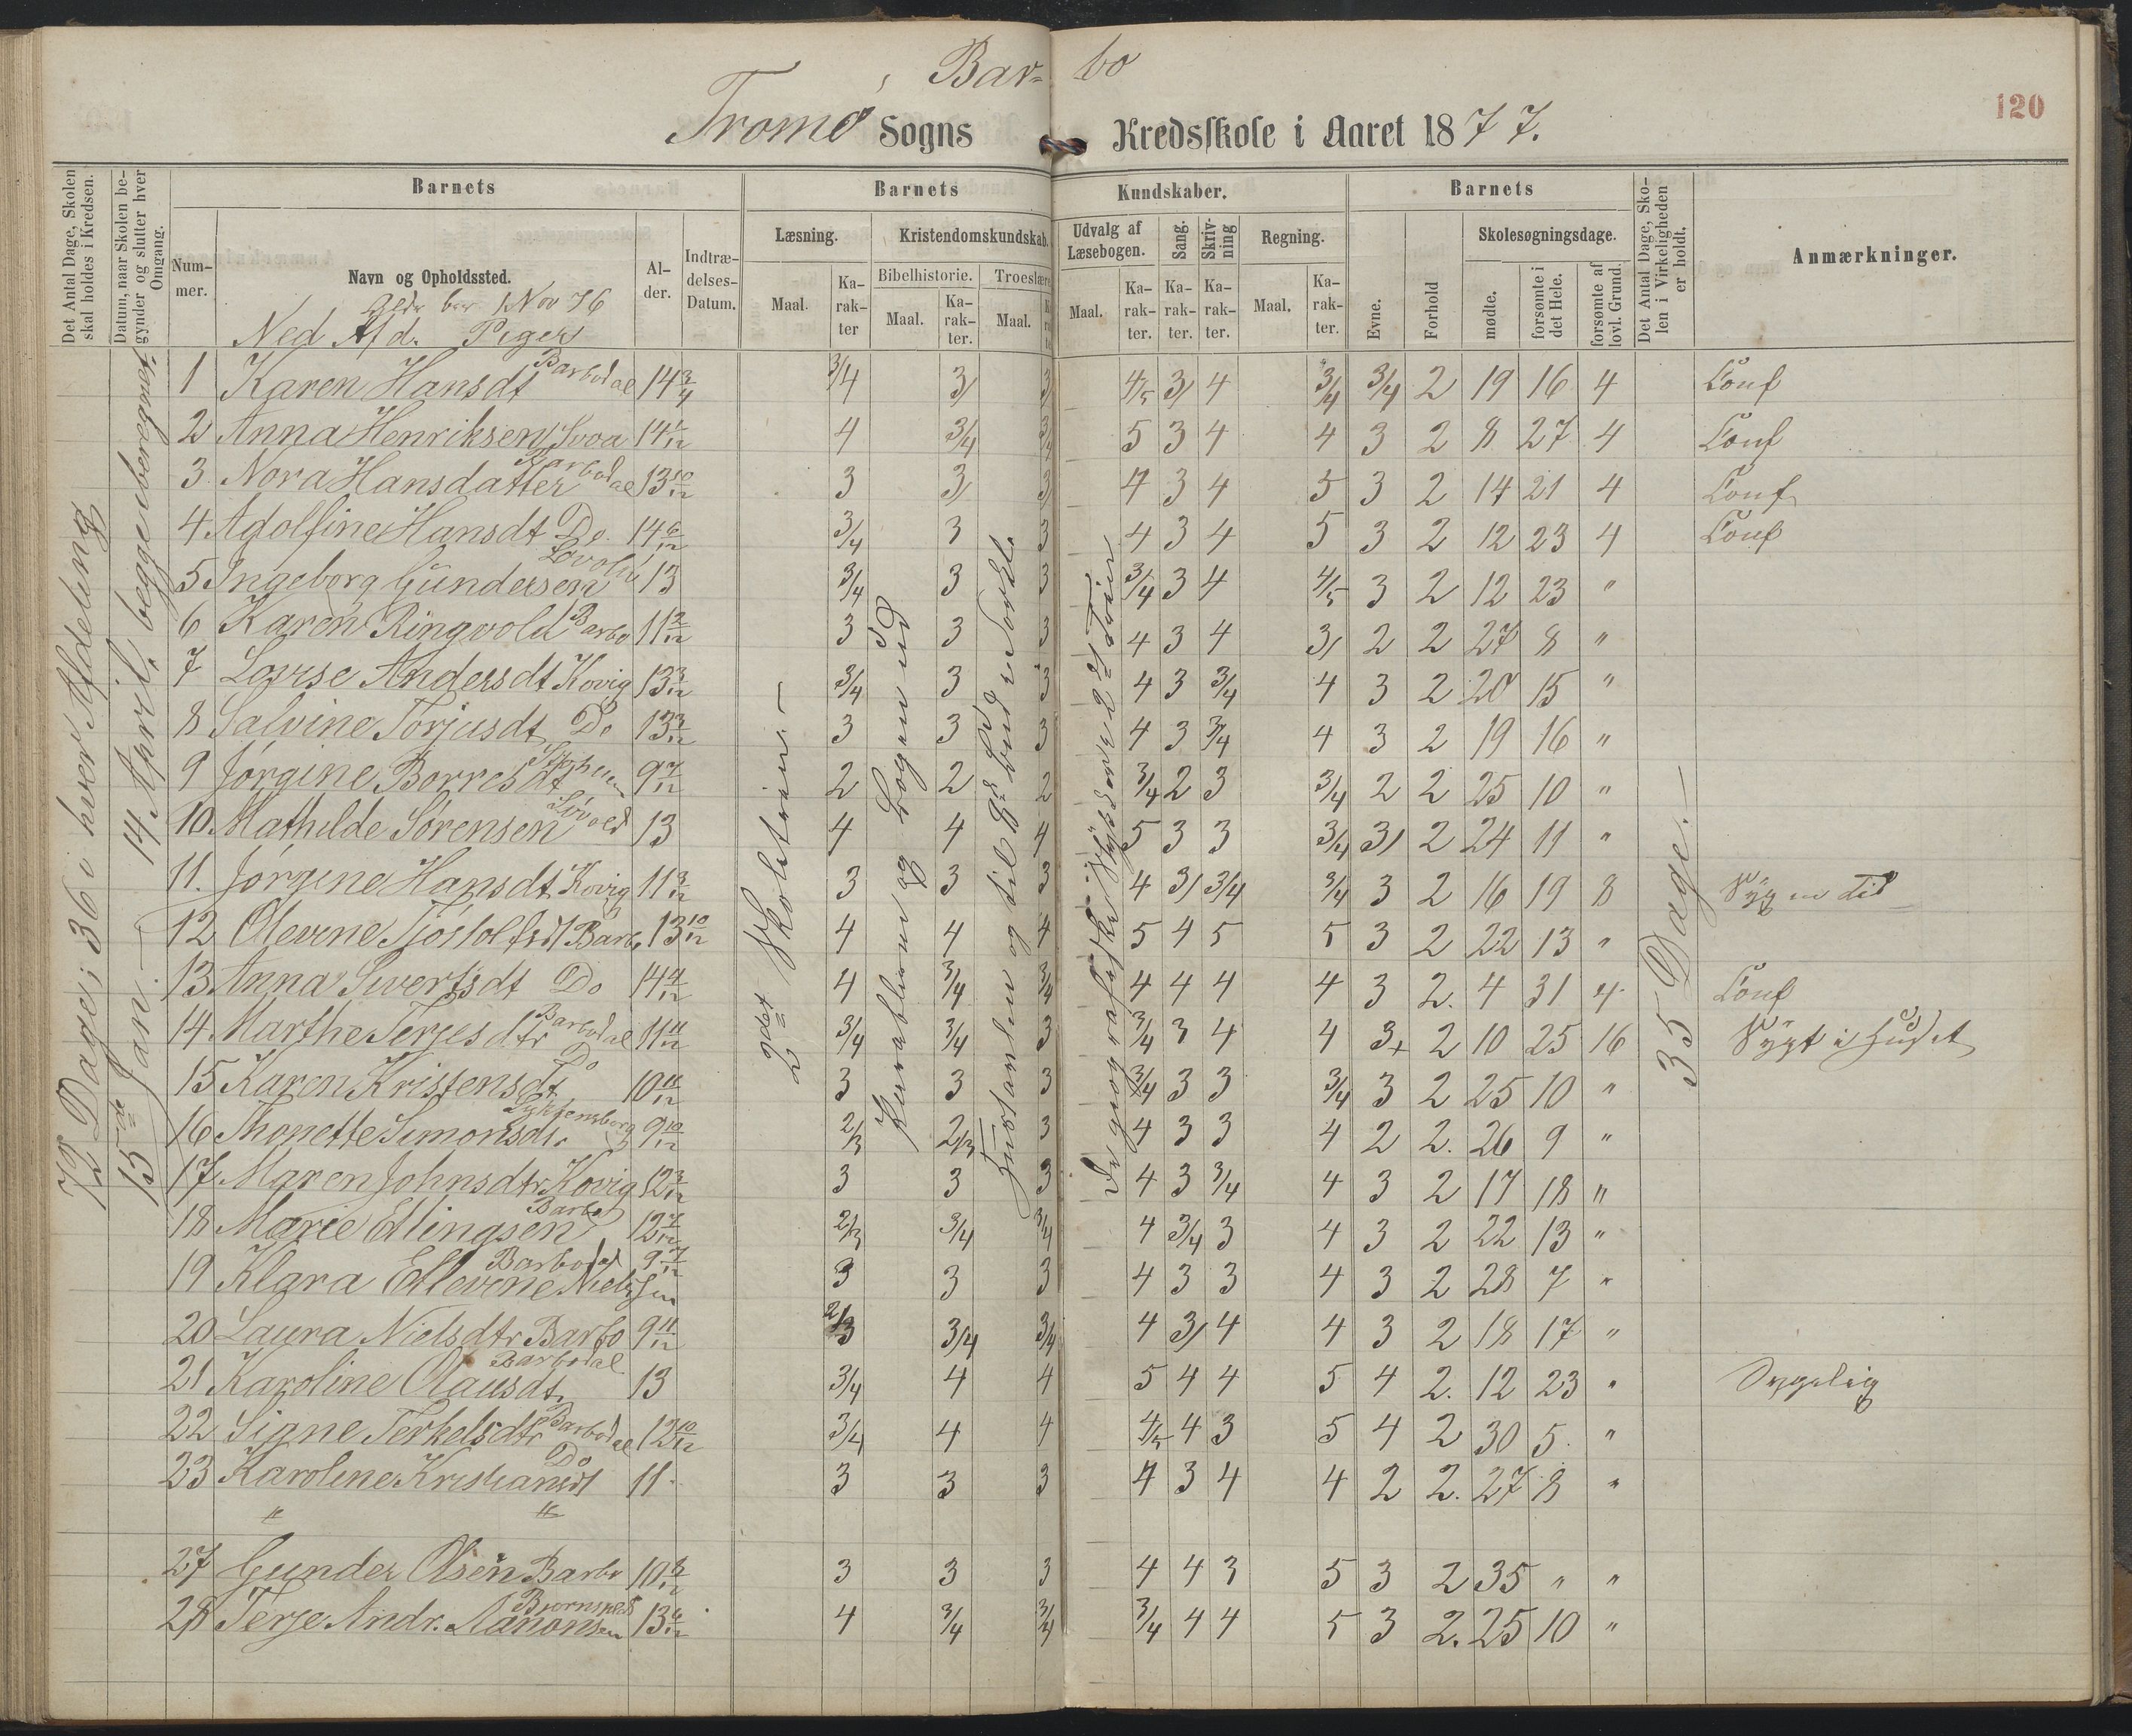 Bar- bo
120
Tromø Sogns Kredsskole i Aaret 1877.
Det Antal Dage, Skolen skal holdes i Kredsen.
Datum, naar Skolen be- gynder og slutter hver Omgang.
Barnets
Barnets Kundskaber.
Barnets
Det Antal Dage, Sko- len i Virkeligheden er holdt.
Anmærkninger.
Num- mer.
Navn og Opholdssted.
Al- der.
Indtræ- delses- Datum.
Læsning.
Kristendomskundskab.
Udvalg af Læsebogen.
Sang.
Skriv- ning
Regning.
Evne.
Forhold
Skolesøgningsdage.
Maal.
Ka- rak- ter
Bibelhistorie.
Troeslære
Maal.
Ka- rak- ter.
Maal.
Maal.
Ka- rak- ter.
Ka- rak- ter.
Ka- rak- ter.
Maal.
Ka- rak- ter.
mødte.
forsømte i det Hele.
forsømte af lovl. Grund.
1 Nov 76
Ned Afd. Piger
72 Dage; 36 i hver Afdeling
15de Jan. — 14 April, begge iberegnet.
2det Skoletrin. —
35 Dage. —
1 Karen Hansdt Barbodal 14 3/4 3/4 3/ 3/ 4/5 3/ 4 3/4 3/4 2 19 16 4 Conf
2 Anna Henriksen 14 4 3/4 3/4 5 3 4 4 3 2 8 27 4 Conf
3 Nora Hansdatter Barbodal 13 10/12 3 3/ 3/ 4 3 4 5 3 2 14 21 4 Conf
4 Adolfine Hansdt Do. 14 6/12 3/4 3 3 4 3 4 5 3 2 12 23 4 Conf
5 Ingeborg Gundersen 13 3/4 3 3 3/4 3 4 4/5 3 2 12 23 "
6 Karen Ringvold Barbo 11 3/12 3 3 3 4 3 4 3/ 2 2 27 8 "
7 Lovise Andersdt Kovig 13 3/12 3/4 3 3 4 3 3/4 4 3 2 20 15 "
8 Salvine Torjusdt Do 13 3/12 3 3 3 4 3 3/4 4 3 2 19 16 "
9 Jørgine Borresdt 9 7/12 2 2 2 3/4 2 3 3/4 2 2 25 10 "
10 Mathilde Sørensen 13 4 4 4 5 3 3 3/4 3/ 2 24 11 "
11. Jørgine Hansdt Kovig 11 3/12 3 3 3 4 3/ 3/4 3/4 3 2 16 19 8
12 Olevine Tjøstolfsdt Barbo 13 10/12 4 4 4 5 4 5 5 3 2 22 13 "
13 Anna Sivertsdt Do 14 4/12 4 3/4 3/4 4 4 4 4 3 2. 4 31 4 Conf
14 Marthe Terjesdtr Barbodal 11 11/12 3/4 3/4 3 3/4 3 4 4 3+ 2 10 25 16 Sygt i Huset
15 Karen Kristensdt Do 10 11/12 3 3 3 3/4 3 3 3/4 3 2 25 10 "
16 Thonette Simonsdt. 9 10/12 2/3 2/3 3 4 3 3 4 2 2. 26 9 "
17 Maren Johnsdtr Kovig 12 3/12 3 3 3 4 3 3/4 4 3 2 17 18 "
18 Marie Ellingsen Barbo 12 7/12 2/3 3/4 3/4 4 3/4 3 4 3 2 22 13 "
19 Klara Ellevine Nielsen Barbodal 9 7/12 3 3 3 4 3 3 4 3 2 28 7 "
20 Laura Nielsdtr Barbo 9 11/12 2/3 3/4 3/4 4 3/ 4 4 3 2 18 17 "
21 Karoline Olausdt. Barbodal 13 3/4 4 4 5 4 4 5 4 2. 12 23 " Sygelig
22 Signe Terkelsdtr Barbodal 12 10/12 3/4 4 4 4/5 4 3 5 4 2 30 5. "
23 Karoline Kristiansdt Do 11 3 3 3 4 3 4 4 2 2. 27 8 "
" "
27 Gunder Olsen Barbo 10 8/12 3 3 3 4 4 3 5 3 2 35 " "
28 Terje Andr. Aanonsen 13 6/12 4 3/4 3/4 3/4 4 4 5 3 2. 25 10 "